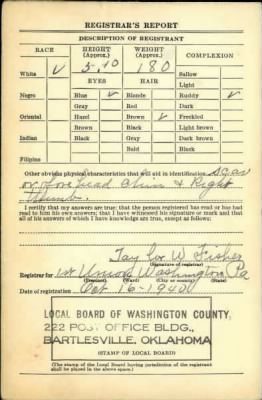 REGISTRAR'S REPORT
DESCRIPTION OF REGISTRANT
RACE HEIGHT (Approx.) WEIGHT (Approx.) COMPLEXION
5-10 180
White ✓ Sallow
EYES HAIR Light
Negro Blue ✓ Blonde Ruddy ✓
Gray Red Dark
Oriental Hazel Brown ✓ Freckled
Brown Black Light brown
Indian Black Gray Dark brown
Bald Black
Filipino
Other obvious physical characteristics that will aid in identification Scar
on forehead Chin & Right
Thumb.
I certify that my answers are true; that the person registered has read or has had
read to him his own answers; that I have witnessed his signature or mark and that
all of his answers of which I have knowledge are true, except as follows:
Taylor W Fisher
(Signature of registrar)
Registrar for 1st Union Washington Pa
(Precinct) (Ward) (City or county) (State)
Date of registration Oct 16-1940
LOCAL BOARD OF WASHINGTON COUNTY,
222 POST OFFICE BLDG.,
BARTLESVILLE, OKLAHOMA
(STAMP OF LOCAL BOARD)
(The stamp of the Local Board having jurisdiction of the registrant
shall be placed in the above space.)